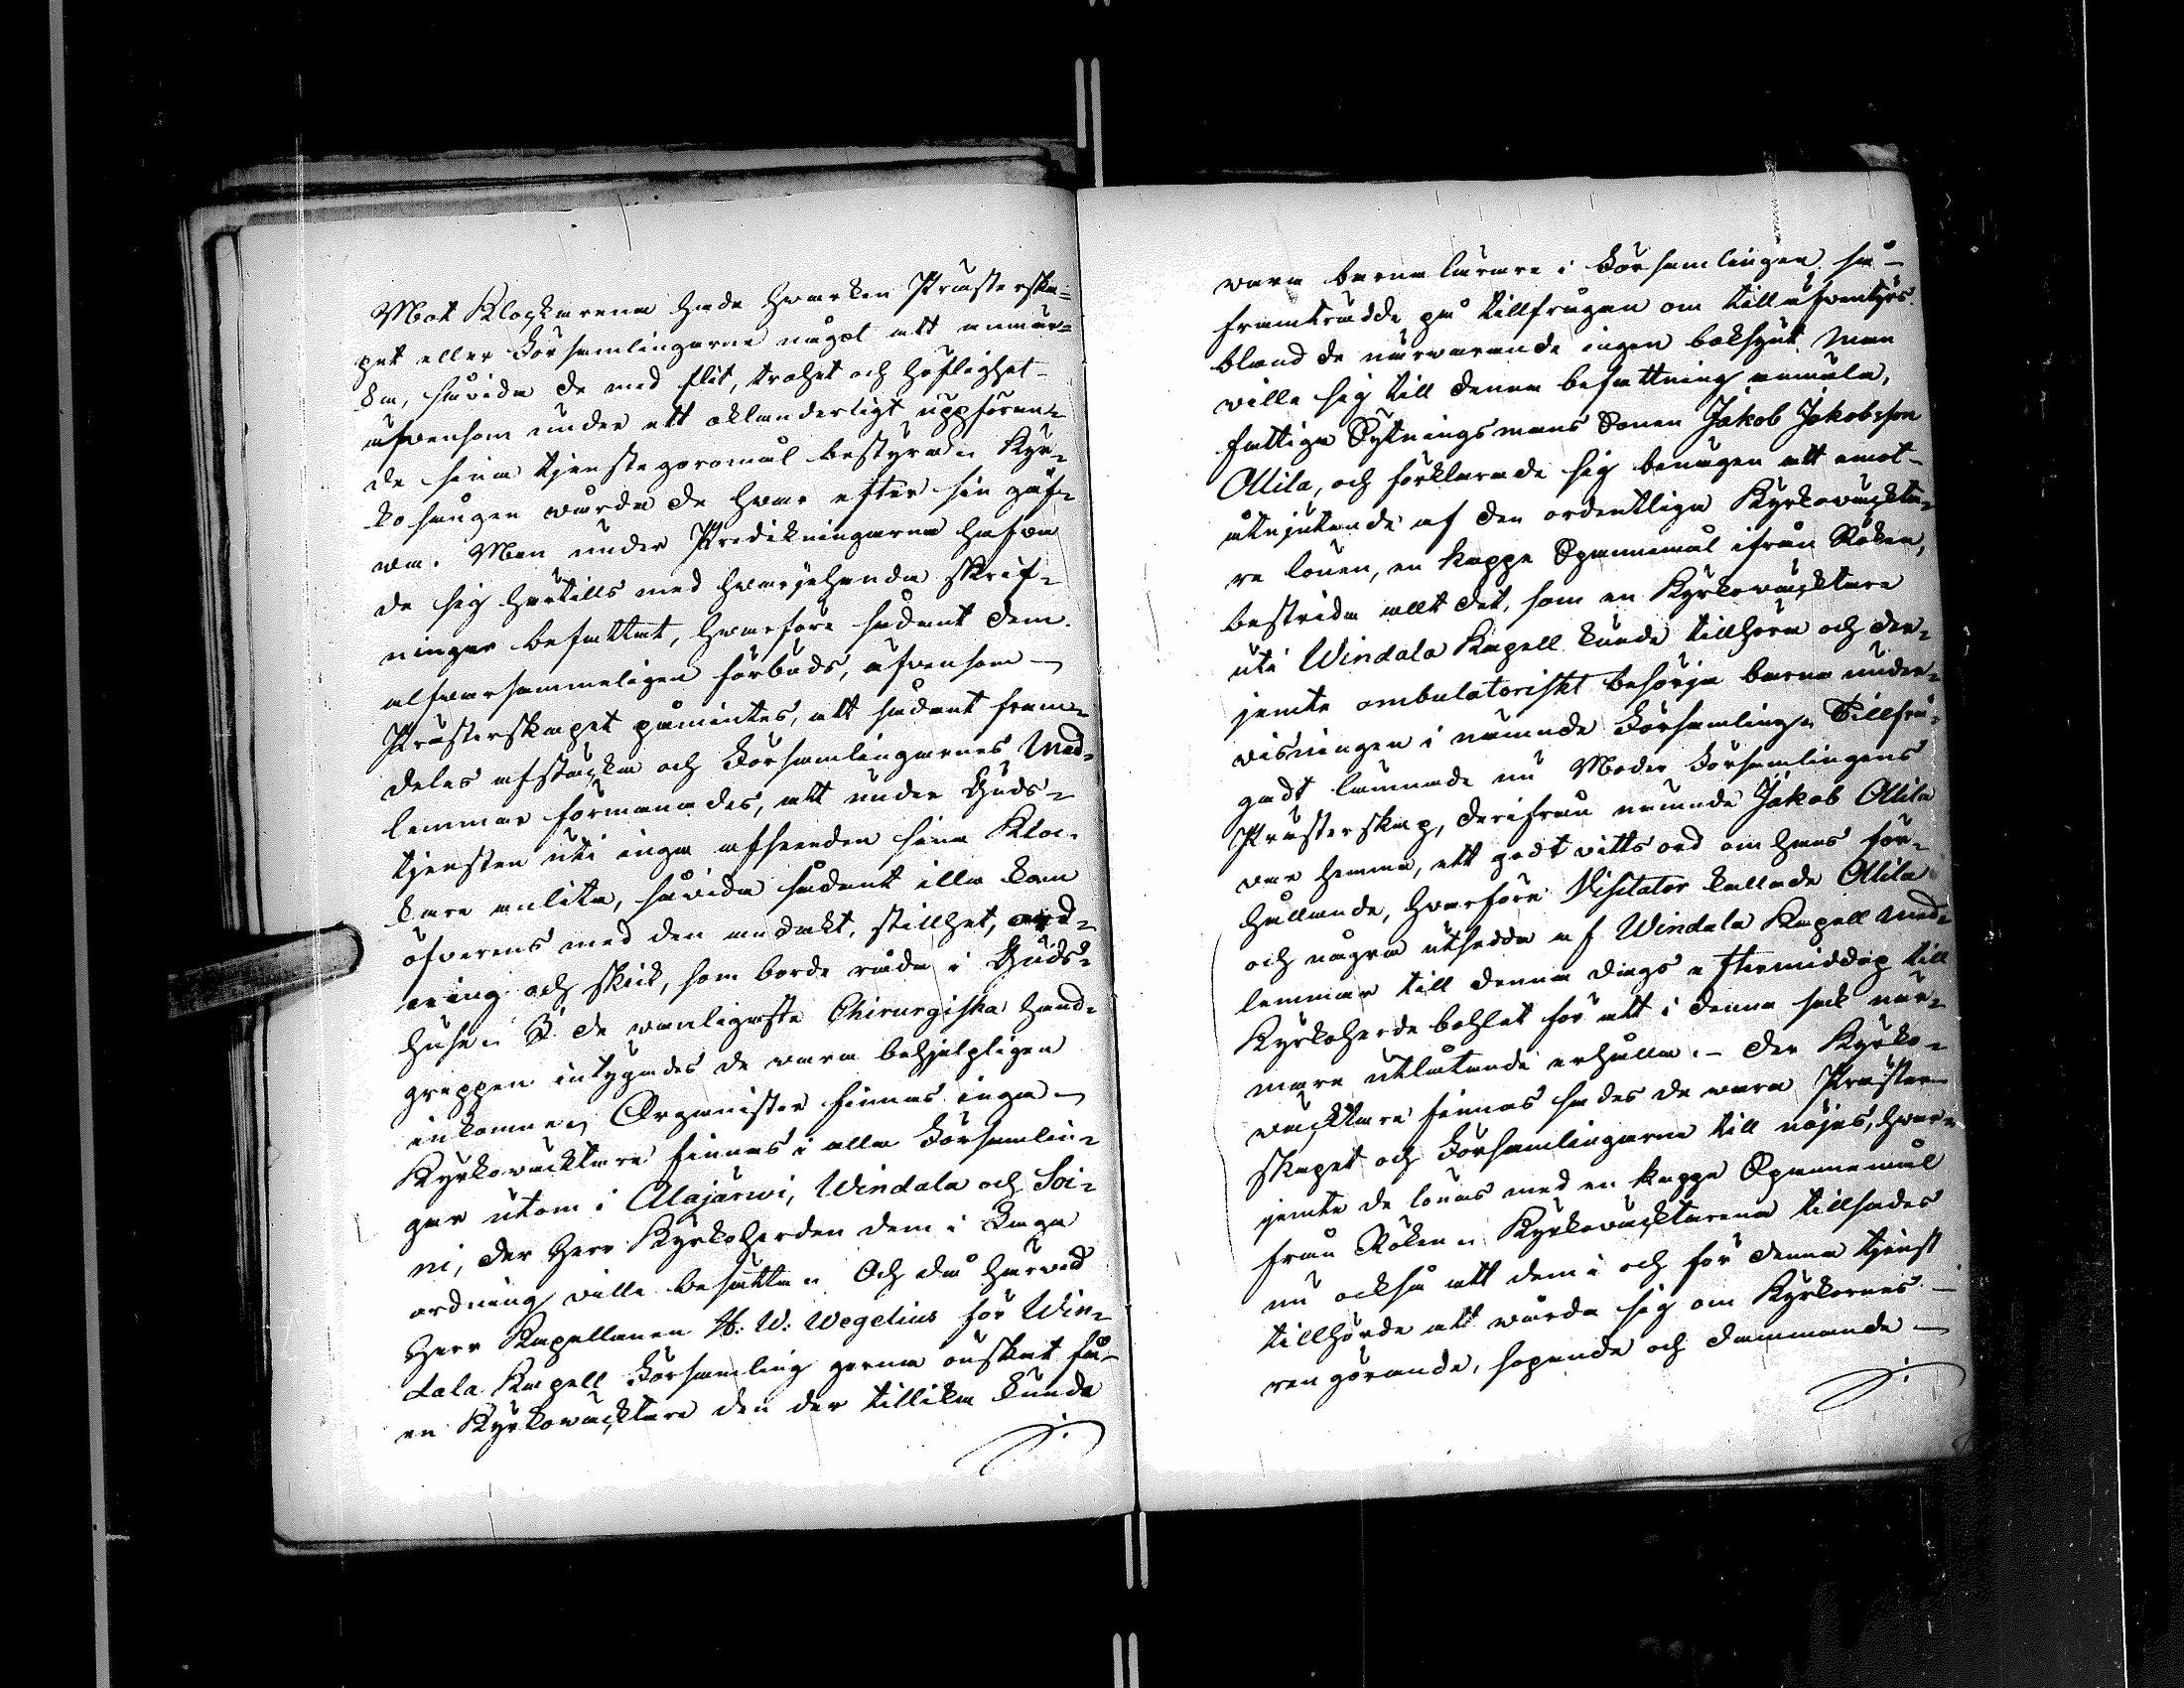 Mot Klockarena hade hwarken Prästerska-
pet eller Församlingarne något att anmär-
ka, såvida de med flit, trohet och höflighet
äfvensom under ett oklanderligt uppföran-
de sina tjenstegöromål bestyra. Kyr-
kosången vårda de hvar efter sin gåf-
va. Men under Predikningarne hafva
de sig härtills med hvarjehanda skrif-
ningar befattat, hvarföre sådant dem
alfvarsammeligen förböds, äfvensom
Prästerskapet påmintes, att sådant fram-
deles afskaffa och Församlingarnes Med-
lemmar förmanades, att under Guds-
tjensten uti inga afseenden sina Kloc-
kare anlita, såvida sådant illa kom
öfverens med den andakt, stillhet, ord-
ning och skick, som borde råda i Guds-
husen. I de vanligaste Chirurgiska hand-
greppen intygades de vara behjelpligen
inkomne. Organister finnas inga
Kyrkoväcktare finnas i alla Församlin-
gar utom i Alajärwi, Windala och Soi-
ni, der Herr Kyrkoherden dem i laga
ordning ville besätta. Och då härvid
Herr Kapellanen H: W: Wegelius för Win-
dala Kapell Församling gerna önskat få
en Kyrkoväcktare den der tillika kunde
vara barnalärare i Församlingen, så
framträdde på tillfrågan om till äfventyrs
bland de närvarande ingen boksynt Man
ville sig till denna befattning anmäla,
fattiga Sytningsmans Sonen Jakob Jakobsson
Ollila, och förklarade sig benägen att emot
åtnjutande af den ordentliga Kyrkoväckta-
re lönen, en kappe Spannemål ifrån Röken,
bestrida allt det, som en Kyrkoväcktare
uti Windala Kapell kunde tillhöra och der-
jemte ambulatoriskt besörja barna under-
visningen i nämnde Församling. Tillfrå-
gadt lämnade nu Moder Församlingens
Prästerskap, derifrån nämnde Jakob Ollila
var hemma, ett godt vittsord om hans för-
hållande, hvarföre Visitator kallade Ollila
och några utsedda af Windala Kapell Med-
lemmar till denna dags eftermiddag till
Kyrkoherdebohlet för att i denna sak när-
mare utlåtande erhålla. - Der Kyrko-
väcktare finnas sades de vara Präster-
skapet och Församlingarne till nöjes, hvar-
jemte de lönas med en kappe Spannemål
från Röken. Kyrkoväcktarena tillsades
nu också att dem i och för denna tjenst
tillhörde att vårda sig om Kyrkornes
rengörande, sopande och dammande